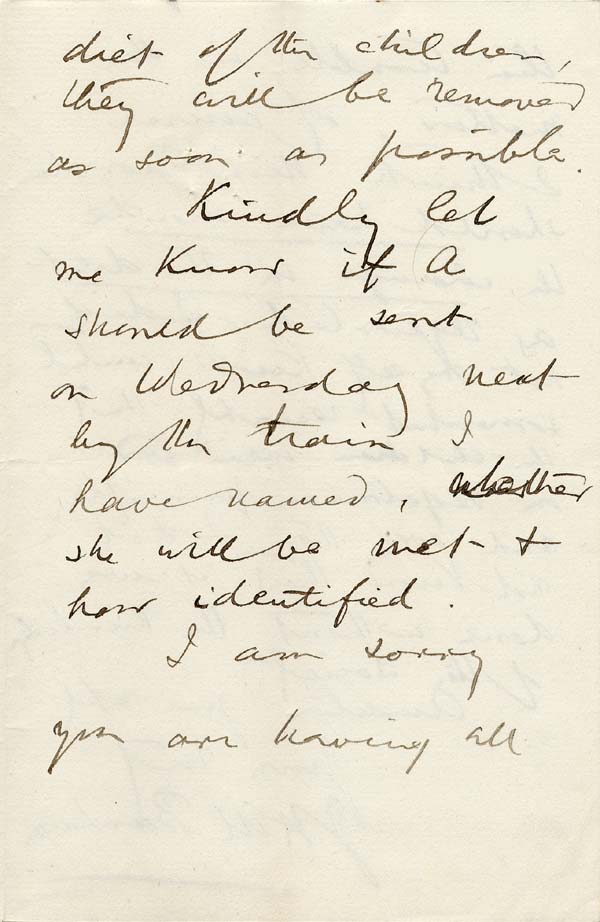 diet of the children,
they will be removed
as soon as possible.
Kindly let
me know if A
should be sent
on Wednesday next
by the train I
have named, whether
she will be met +
how identified.
I am sorry
you are having all